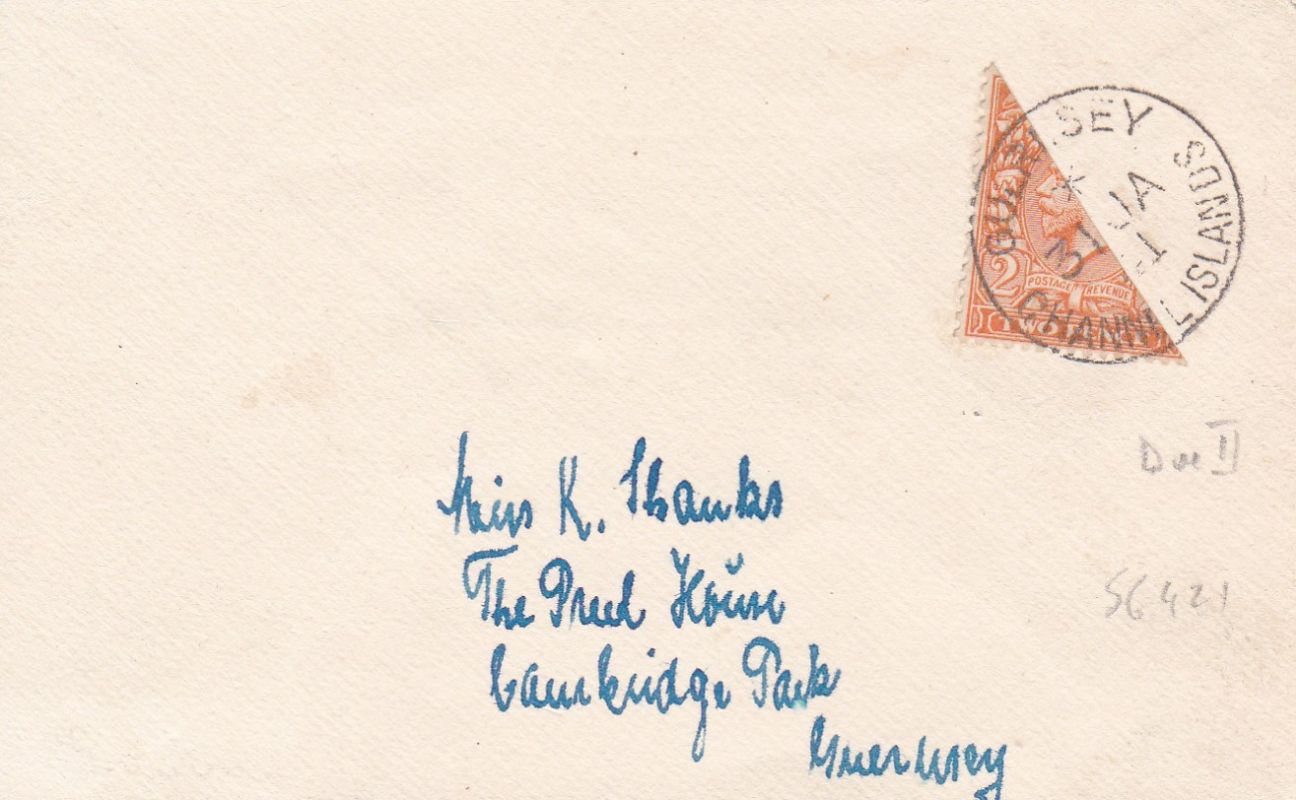 GUERNSEY
CHANNEL ISLANDS
31 JA
41
2
POSTAGE REVENUE
TWO PENCE
Die II
SG 421
Miss K. Shanks
The Priest House
Cambridge Park
Guernsey